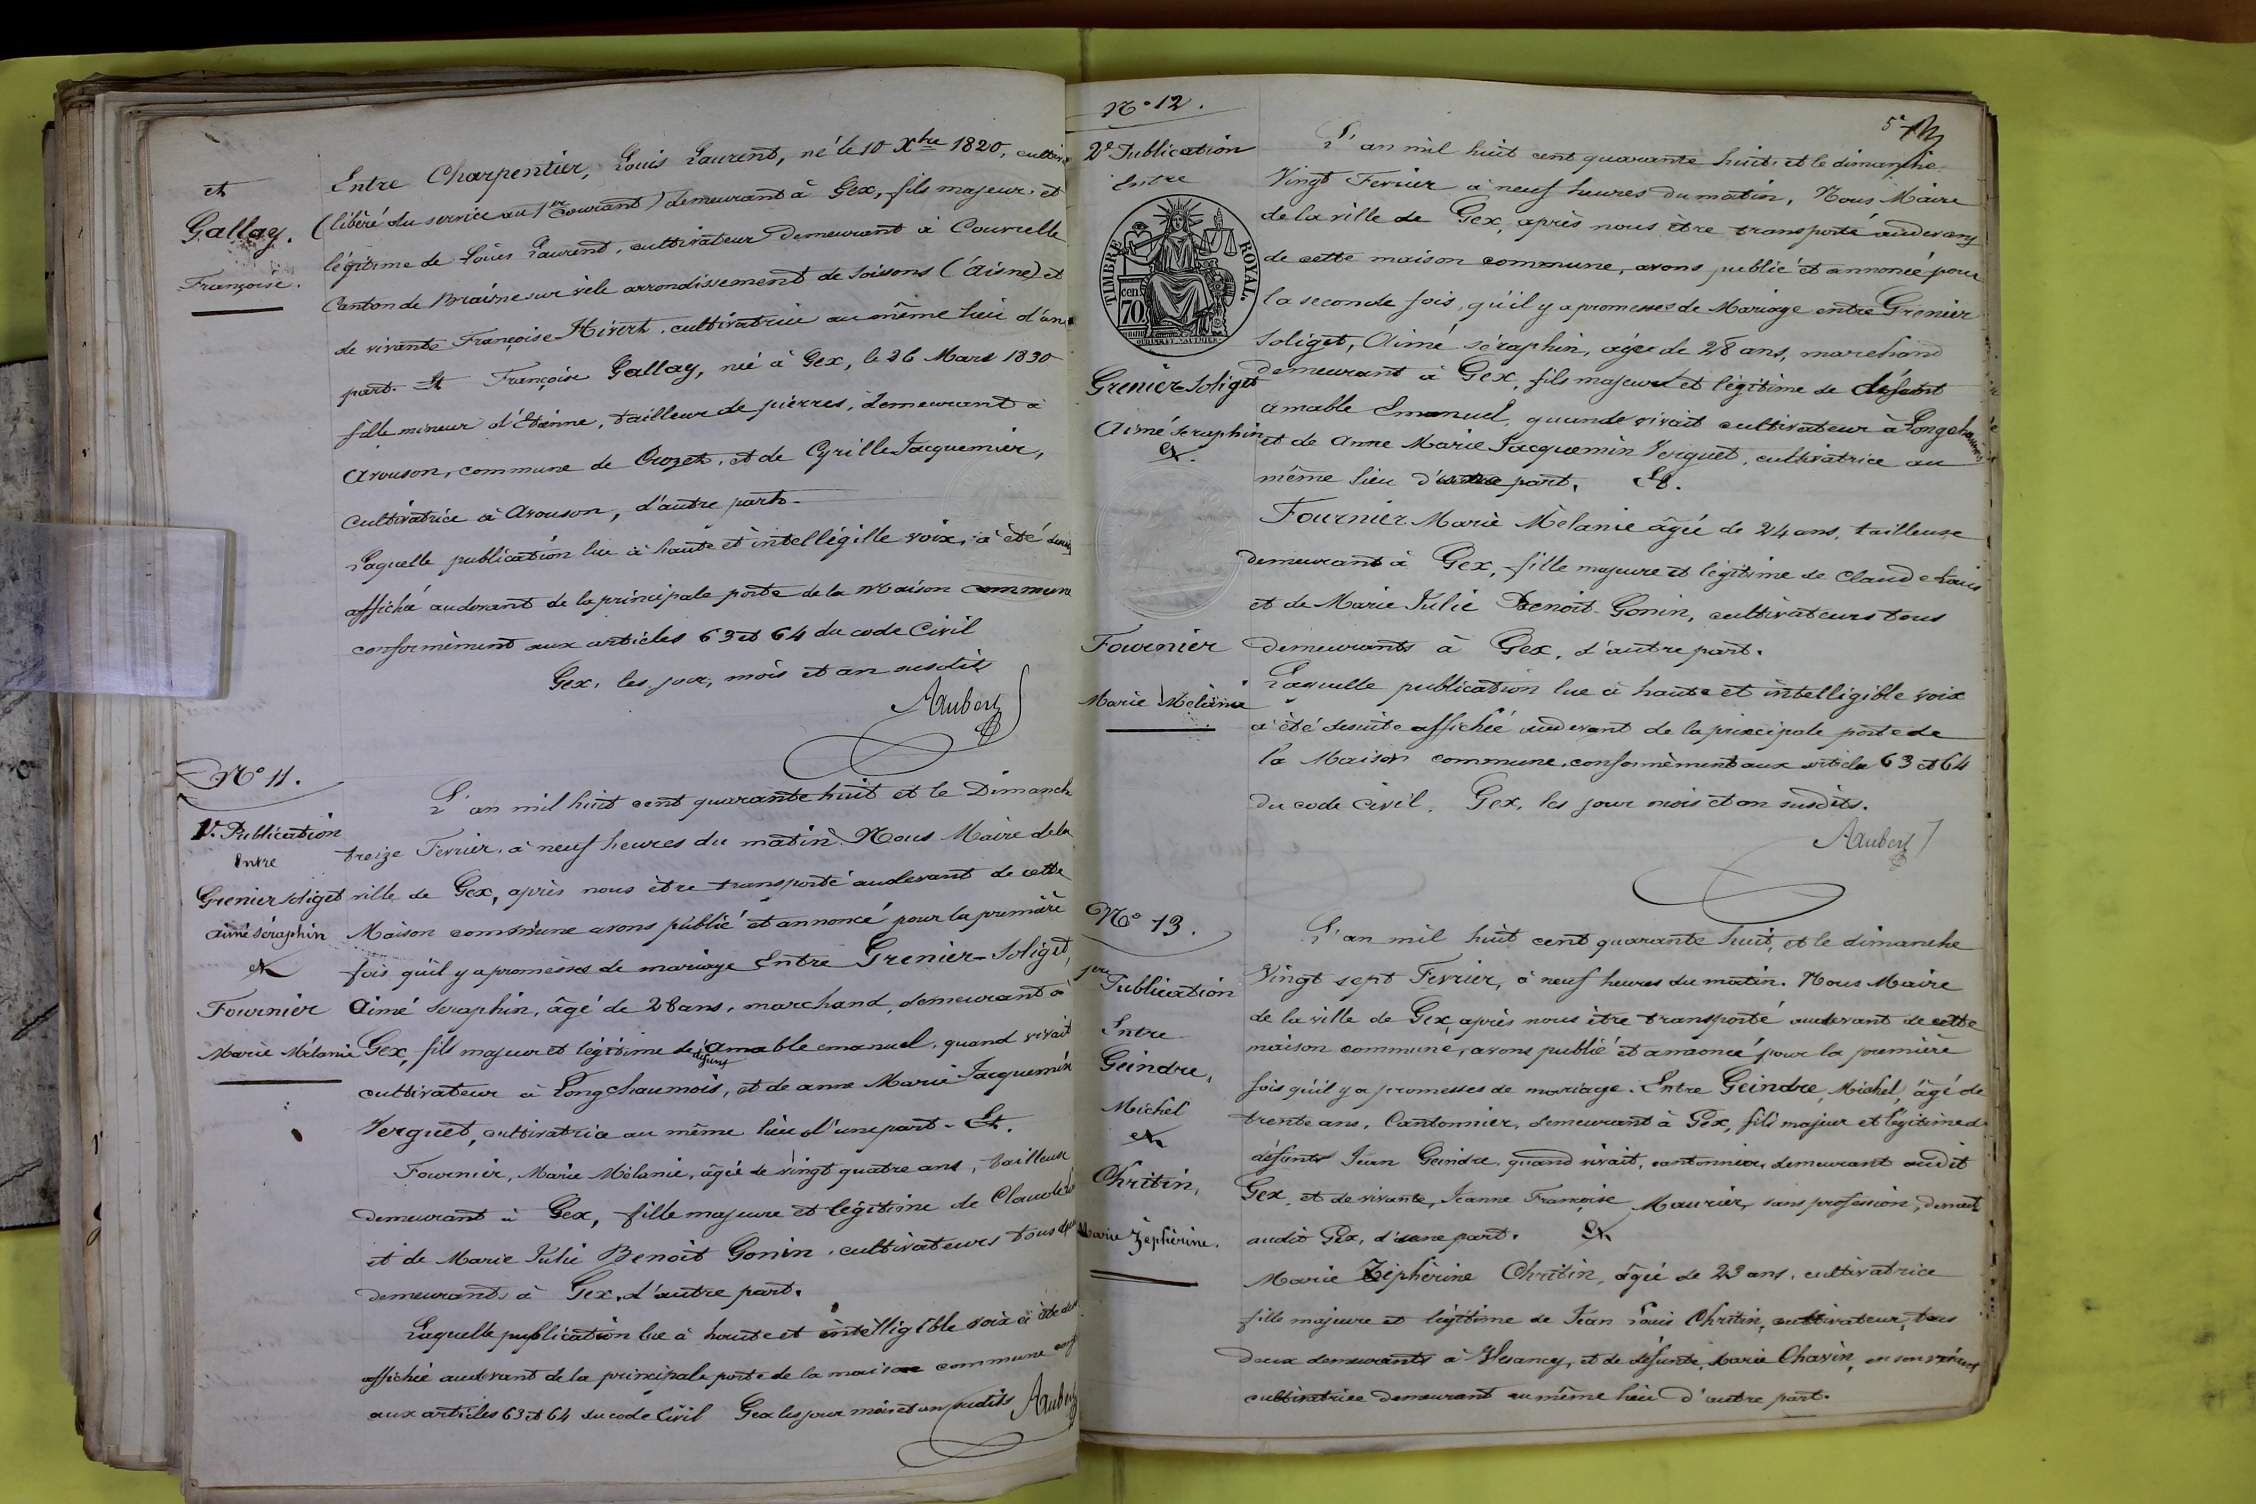 et
Gallay.
Françoise.
Entre Charpentier, Louis Laurent, né le 10 Xbre 1820,
(libéré du service au 1er courant) demeurant à Gex, fils majeur et
légitime de Louis Laurent, cultivateur demeurant à Courcelle
Canton de Braisne sur vele arrondissement de Soissons (Aisne) et
de vivante Françoise Hivert, cultivatrice au même lieu d'une
part. Et Françoise Gallay, née à Gex, le 26 Mars 1830
fille mineur d'Etienne, tailleur de pierres, demeurant à
Avouson, commune de Crozet, et de Cyrille Jacquemier,
cultivatrice à Avouson, d'autre part.
Laquelle publication lue à haute et intelligille voix, à été
affiché audevant de la principale porte de la Maison commune
conformèment aux articles 63 et 64 du code Civil
Gex, les jour, mois et an susdits
Aubert
No 11.
1re Publication
Entre
Grenier Soliget
aimé séraphin
et
Fournier
Marie Mélanie
L'an mil huit cent quarante huit et le Dimanch
treize Fevrier, à neuf heures du matin. Nous Maire de la
ville de Gex, après nous être transporté audevant de cette
Maison commune avons publié et annoncé pour la première
fois qu'il y a promesses de mariage Entre Grenier-Soliget,
Aimé Seraphin, âgé de 28 ans, marchand, demeurant à
Gex, fils majeur et légitime de défunt amable emanuel, quand vivait
cultivateur à Longchaumois, et de anne Marie Jacquemin
Verguet, cultivatrice au même lieu d'une part. Et.
Fournier, Marie Mélanie, âgée de vingt quatre ans, tailleuse
demeurant à Gex, fille majeure et légitime de Claude
et de Marie Julie Benoit Gonin, cultivateurs tous
demeurants à Gex, d'autre part.
Laquelle publication lue à haute et intelligible voix à été
affichée audevant de la principale porte de la maison commune
aux articles 63 et 64 du code Civil Gex les jour mois et an susdits Aubert
No 12.
2e Publication
Entre
TIMBRE ROYAL.
70 cen.
Grenier-Soliget
Aimé Seraphin
et.
Fournier
Marie Mélanie
5
L'an mil huit cent quarante huit, et le dimanche
Vingt Fevrier à neuf heures du matin, Nous Maire
de la ville de Gex, après nous être transporté audevant
de cette maison commune, avons publié et annoncé pour
la seconde fois, qu'il y a promesses de Mariage entre Grenier
Soliget, Aimé séraphin, agée de 28 ans, marchand
demeurant à Gex, fils majeur et légitime de défunt
amable Emanuel, quande vivait cultivateur à Longchaumois
et de Anne Marie Jacquemin Verguet, cultivatrice au
même lieu d'une part. Et.
Fournier Marie Mélanie âgée de 24 ans, tailleuse
demeurant à Gex, fille majeure et légitime de Claude Louis
et de Marie Julie Benoit-Gonin, cultivateurs tous
demeurants à Gex, d'autre part.
Laquelle publication lue à haute et intelligible voix
à été desuite affichée audevant de la principale porte de
la Maison commune, conformèment aux articles 63 et 64
du code Civil. Gex, les jour mois et an susdits.
Aubert
No 13.
1ère
Publication
Entre
Geindre,
Michel
et
Chritin,
Marie Zéphérine.
L'an mil huit cent quarante huit, et le dimanche
Vingt sept Fevrier, à neuf heures du matin. Nous Maire
de la ville de Gex, après nous être transporté audevant de cette
maison commune, avons publié et annoncé pour la première
fois qu'il y a promesses de mariage. Entre Geindre, Michel, âgé de
trente ans, Cantonnier, demeurant à Gex, fils majeur et légitime de
défunt Jean Geindre, quand vivait, cantonnier, demeurant audit
Gex, et de vivante, Jeanne Françoise Maurier, sans profession, demeurt
audit Gex, d'une part. Et
Marie Zéphérine Chritin, âgée de 23 ans, cultivatrice
fille majeure et légitime de Jean Louis Chritin, cultivateur, tous
deux demeurants à Vesancy, et de défunte, Marie Chavin, en son vivant
cultivatrice demeurant au même lieu d'autre part.